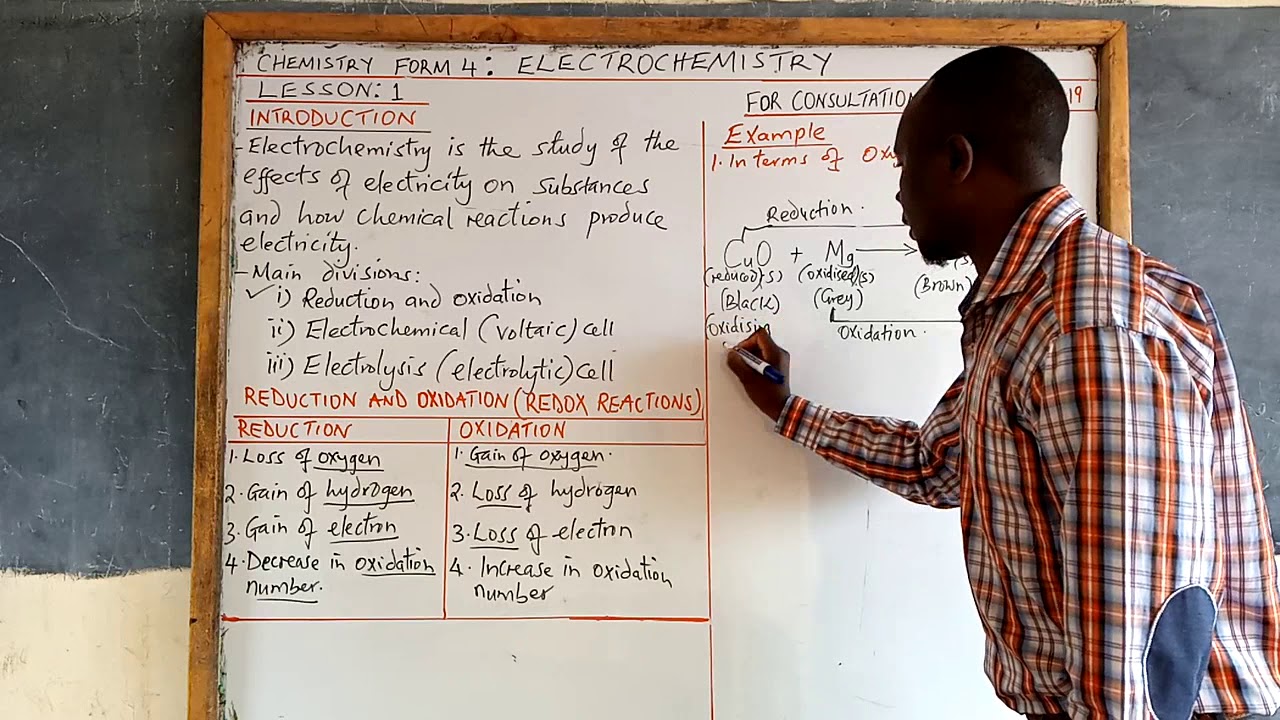 CHEMISTRY FORM 4: ELECTROCHEMISTRY
LESSON: 1
INTRODUCTION
- Electrochemistry is the study of the
effects of electricity on substances
and how chemical reactions produce
electricity.
- Main divisions:
✓ i) Reduction and oxidation
ii) Electrochemical (voltaic) cell
iii) Electrolysis (electrolytic) cell
REDUCTION AND OXIDATION (REDOX REACTIONS)
REDUCTION
1. Loss of oxygen
2. Gain of hydrogen
3. Gain of electron
4. Decrease in oxidation
number.
OXIDATION
1. Gain of oxygen.
2. Loss of hydrogen
3. Loss of electron
4. Increase in oxidation
number
FOR CONSULTATION 19
Example
1. In terms of
Reduction.
CuO + Mg →
(reduced)(s) (oxidised)(s) (s)
(Black) (Grey) (Brown)
(Oxidising
Oxidation.